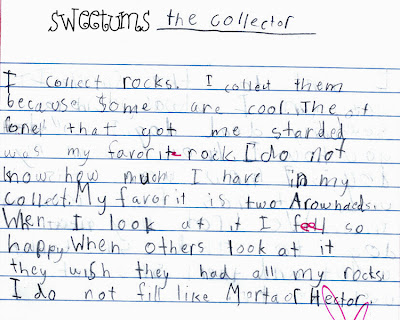 sweetums the collector
I collect rocks. I collect them
because some are cool. The
one that got me starded
was my favorit rock. I do not
know how much I have in my
collect. My favorit is two Arowhaeds.
When I look at it I feel so
happy. When others look at it
they wish they had all my rocks.
I do not fill like Morta or Hestor.